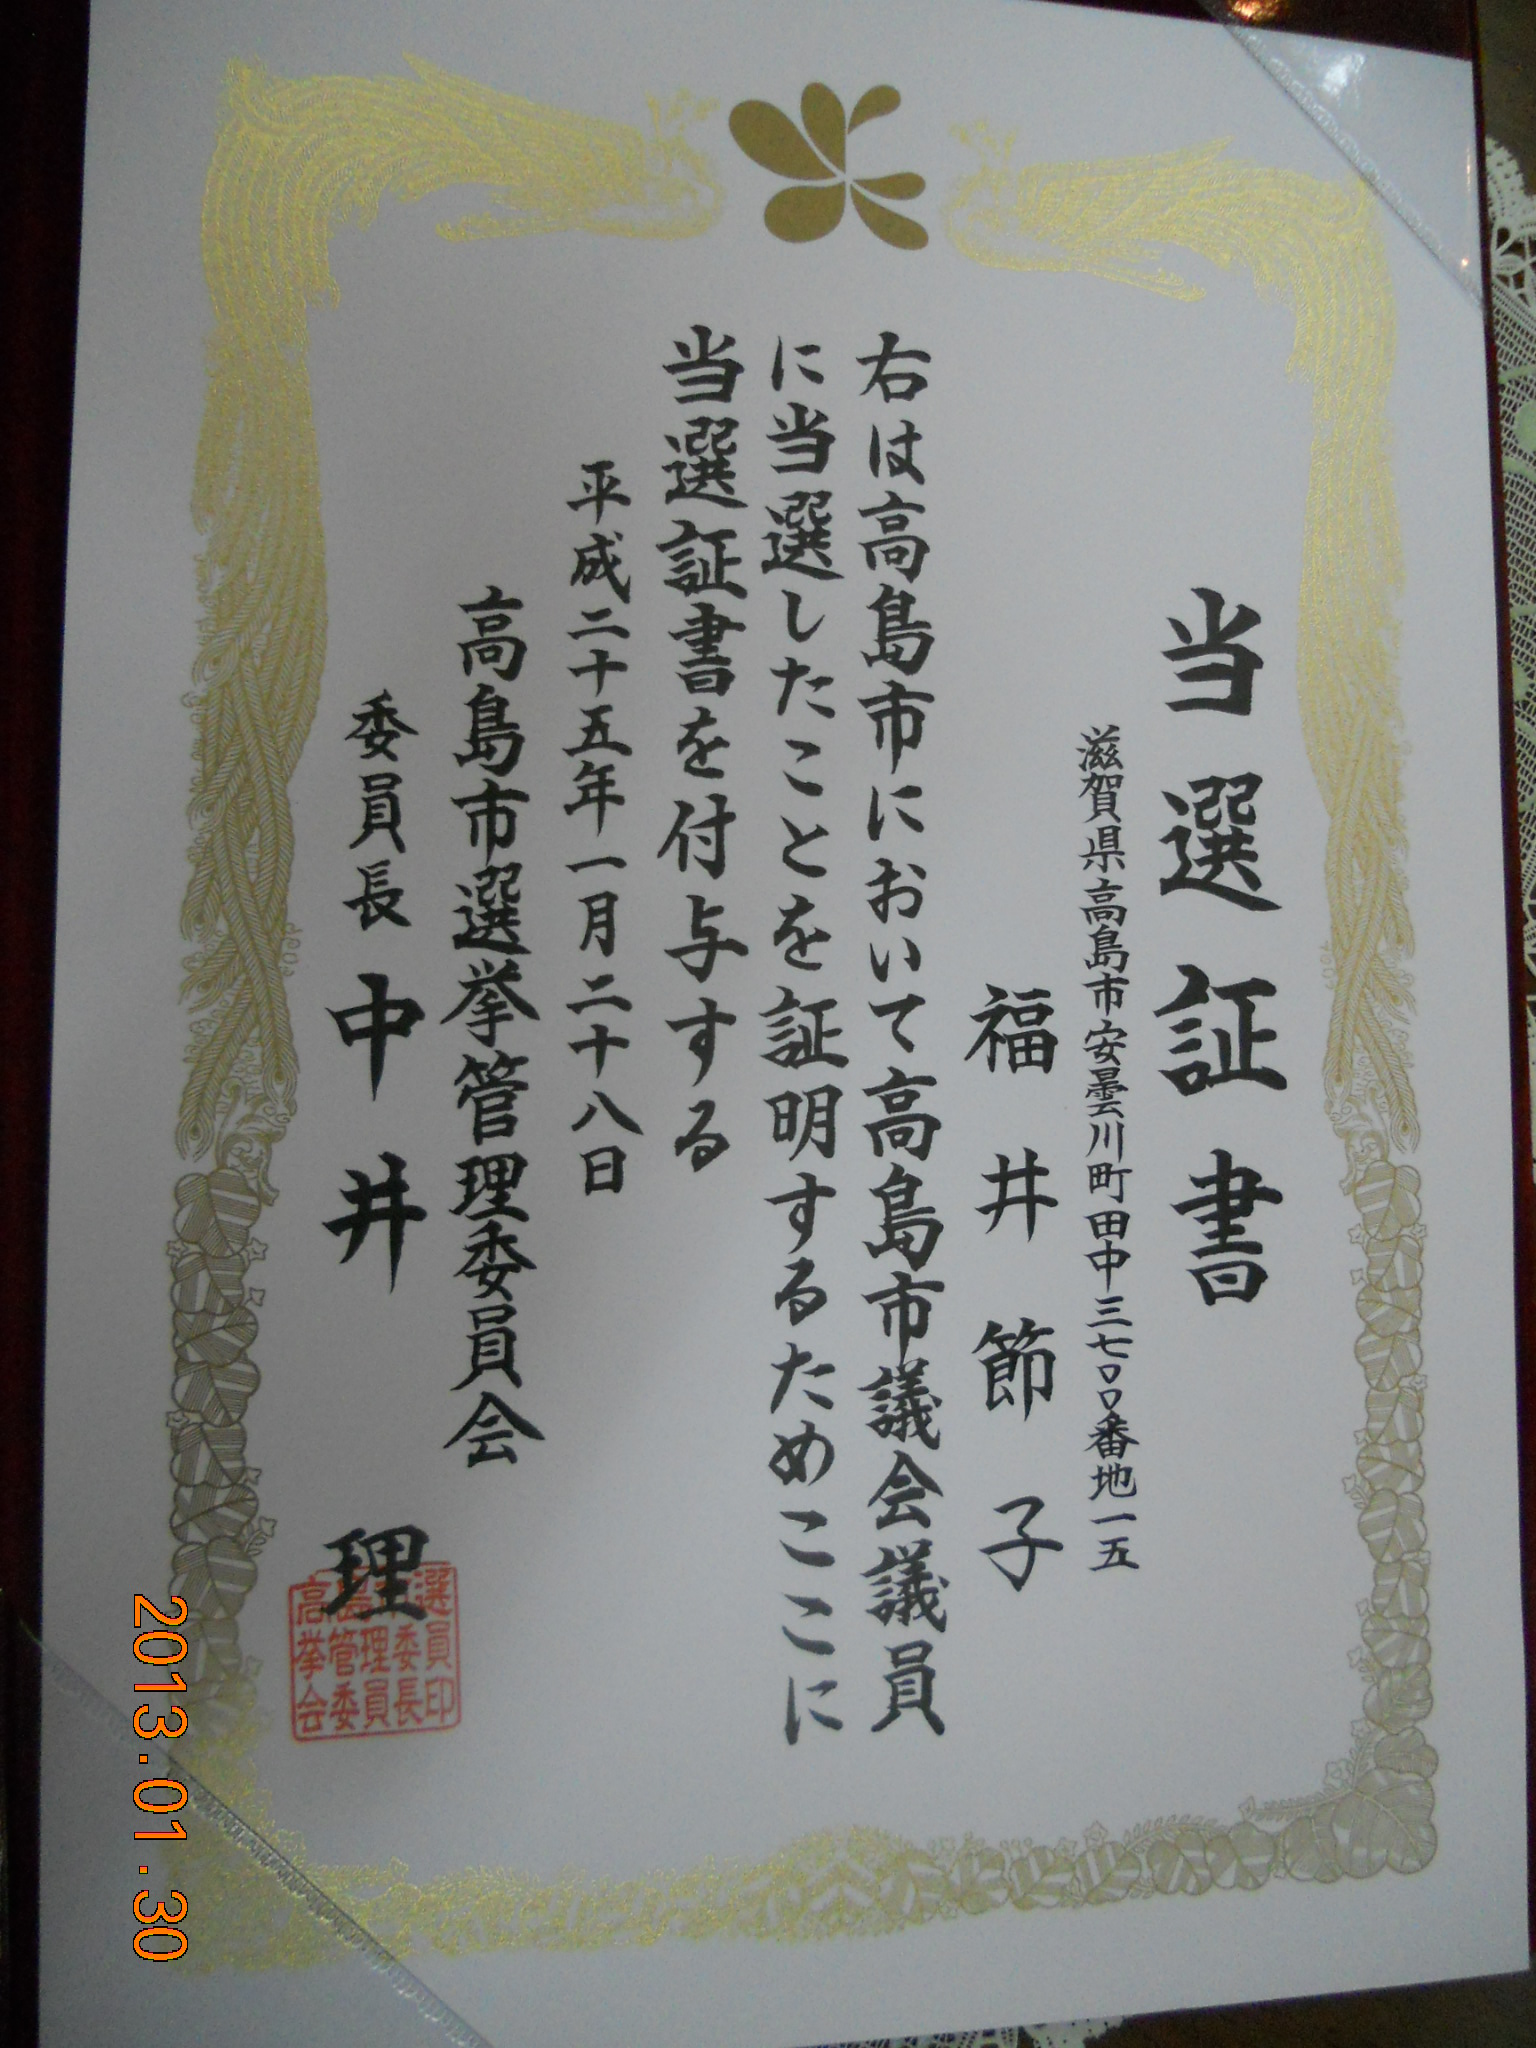 当選証書
滋賀県高島市安曇川町田中三七〇〇番地一五
福井節子
右は高島市において高島市議会議員
に当選したことを証明するためここに
当選証書を付与する
平成二十五年一月二十八日
高島市選挙管理委員会
委員長 中井 理
高島市選
挙管理委員
会委員長印
2013.01.30